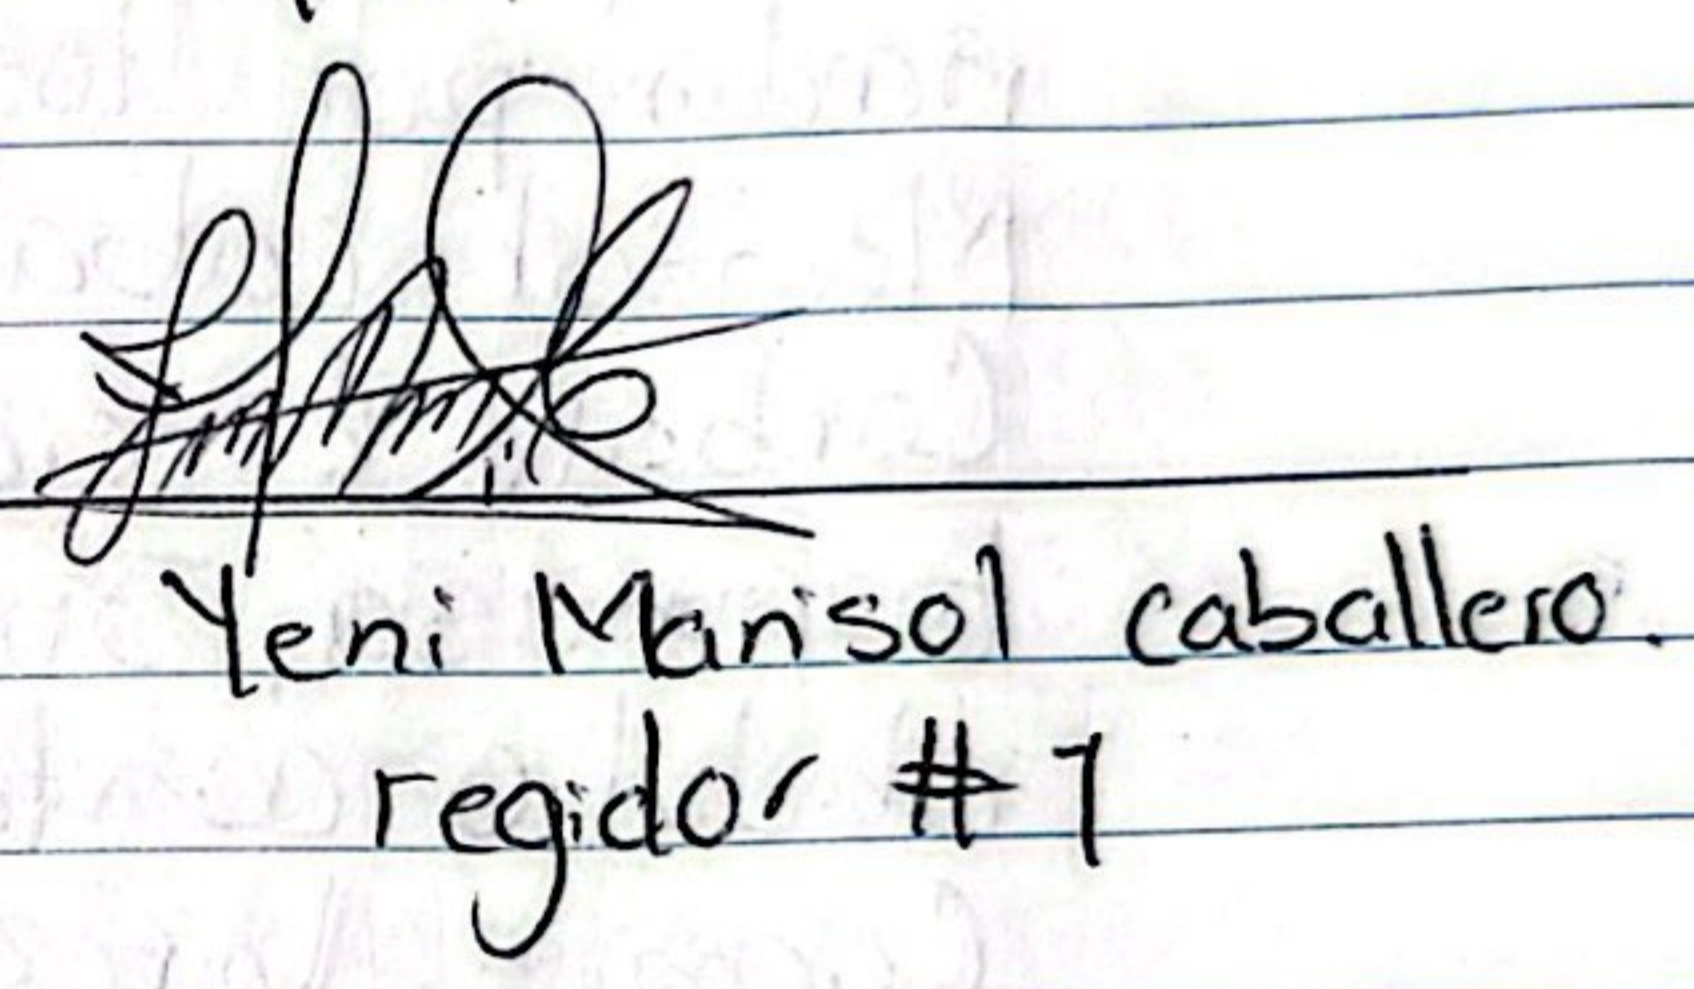 Yeni Marisol caballero.
regidor #1